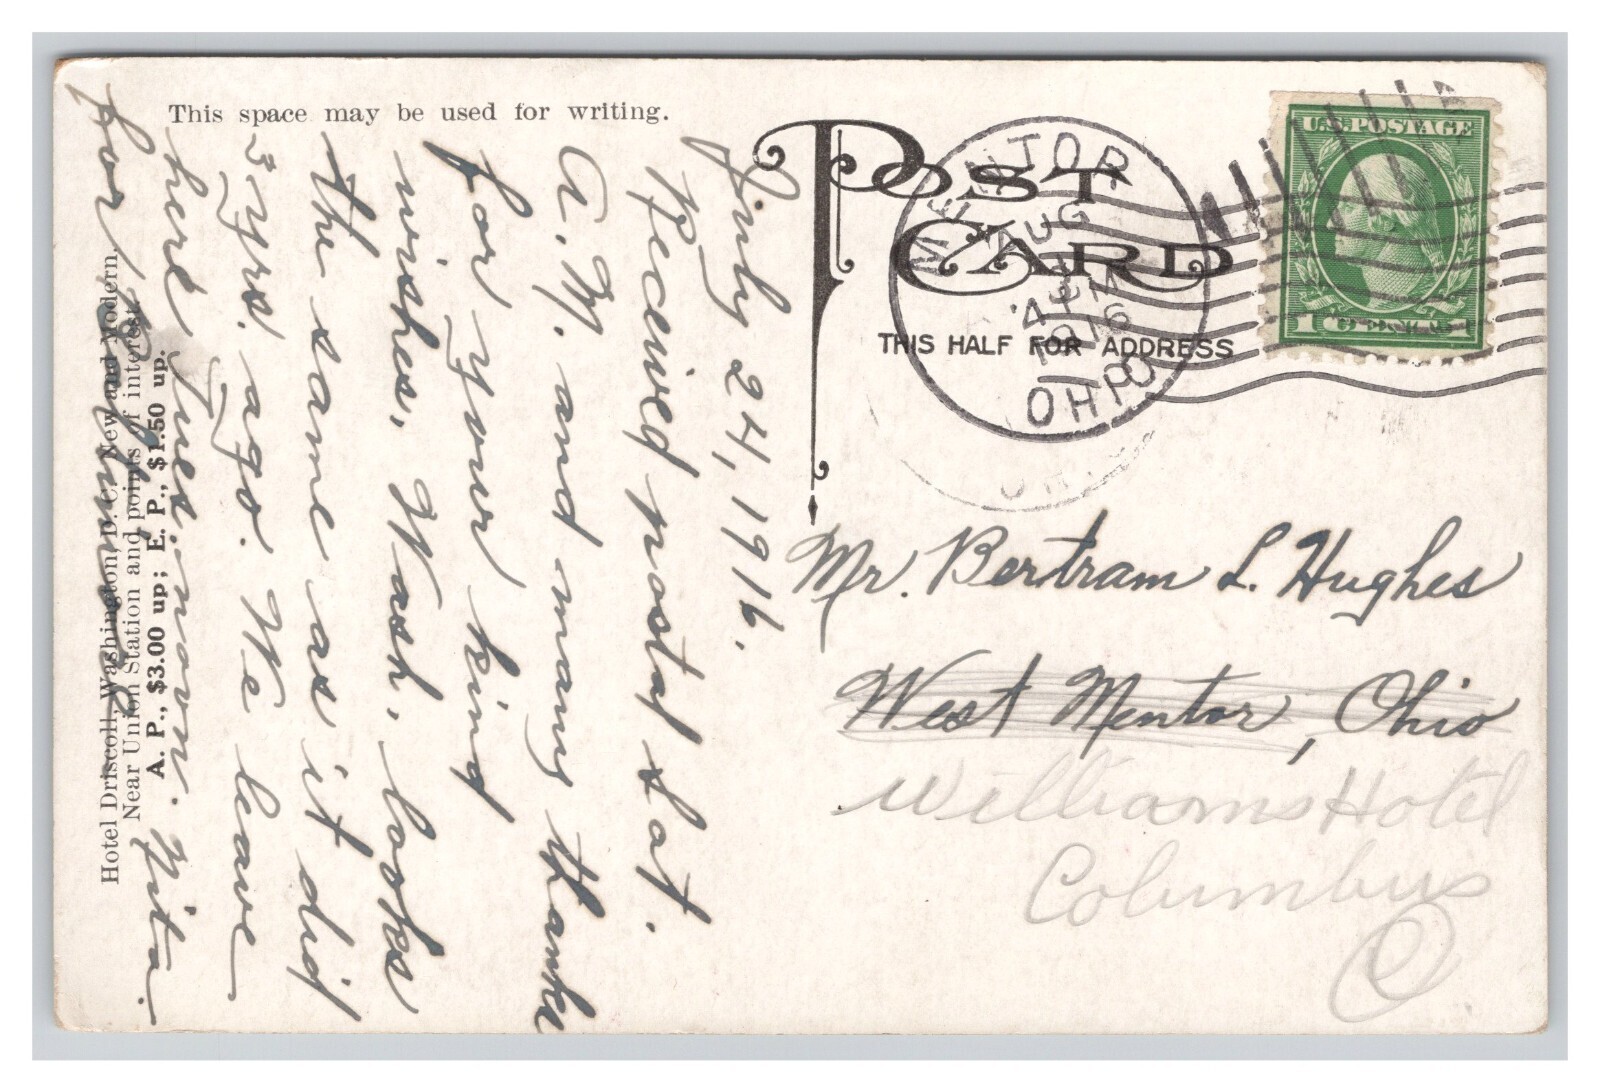 This space may be used for writing.
July 24, 1916.
Received postal Sat.
A.M. and many thanks
for your kind
wishes. Wash. looks
the same as it did
3 yrs. ago. We leave
here Tues. noon. Nita.
for
Hotel Driscoll, Washington, D. C. New and Modern.
Near Union Station and points of interest.
A. P., $3.00 up; E. P., $1.50 up.
POST CARD
THIS HALF FOR ADDRESS
MENTOR
AUG
4 PM
1916
OHIO
U.S. POSTAGE
1 CENT 1
Mr. Bertram L. Hughes
West Mentor, Ohio
Williams Hotel
Columbus
O